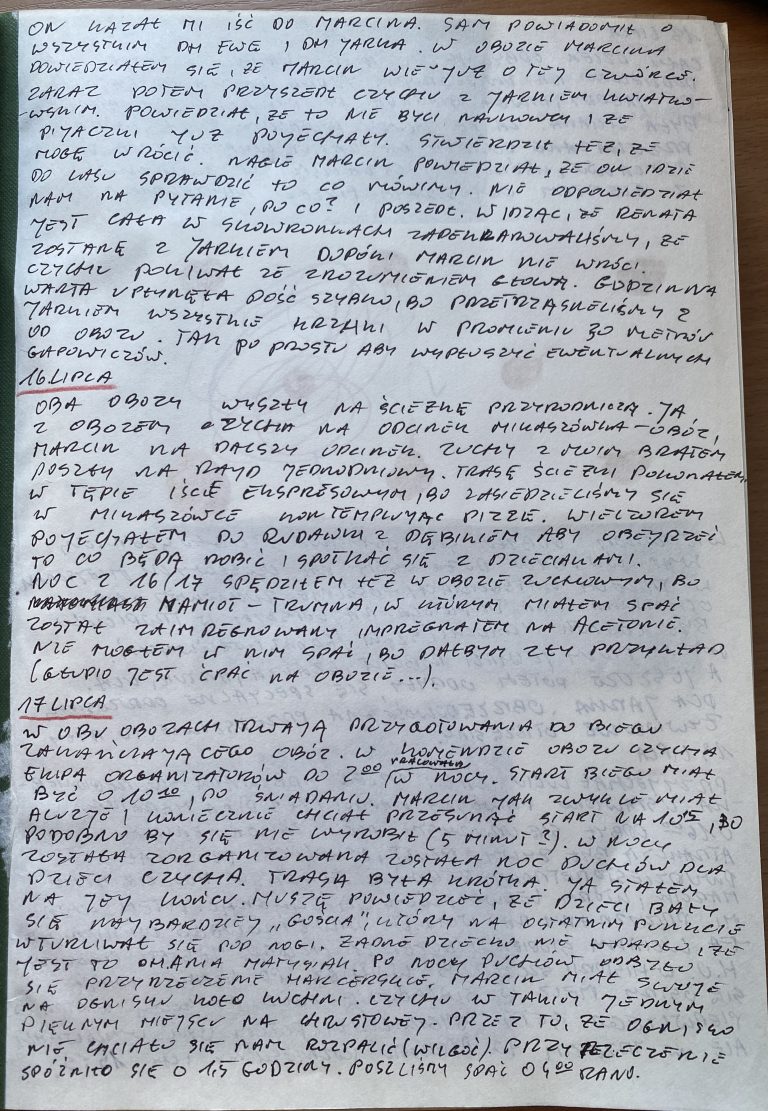 ON KAZAŁ MI IŚĆ DO MARCINA. SAM POWIADOMIŁ O
WSZYSTKIM DH EWĘ I DH JARKA. W OBOZIE MARCINA
DOWIEDZIAŁEM SIĘ, ŻE MARCIN WIE JUŻ O TEJ CZWÓRCE.
ZARAZ POTEM PRZYSZEDŁ CZYCHU Z JARKIEM KWIATKO-
-WSKIM. POWIEDZIAŁ, ŻE TO NIE BYLI NAUKOWCY I ŻE
PIJACZKI JUŻ POJECHAŁY. STWIERDZIŁ TEŻ, ŻE
MOGĘ WRÓCIĆ. NAGLE MARCIN POWIEDZIAŁ, ŻE ON IDZIE
DO LASU SPRAWDZIĆ TO CO MÓWIMY. NIE ODPOWIEDZIAŁ
NAM NA PYTANIE, PO CO? I POSZEDŁ. WIDZĄC, ŻE RENATA
JEST CAŁA W SKOWRONKACH ZADEKLAROWALIŚMY, ŻE
ZOSTANĘ Z JARKIEM DOPÓKI MARCIN NIE WRÓCI.
CZYCHU POKIWAŁ ZE ZROZUMIENIEM GŁOWĄ. GODZINNA
WARTA UPŁYNĘŁA DOŚĆ SZYBKO, BO PRZETRZĄSNELIŚMY Z
JARKIEM WSZYSTKIE KRZAKI W PROMIENIU 30 METRÓW
OD OBOZU. TAK PO PROSTU ABY WYPŁOSZYĆ EWENTUALNYCH
GAPOWICZÓW.
16 LIPCA
OBA OBOZY WYSZŁY NA ŚCIEŻKĘ PRZYRODNICZĄ. JA
Z OBOZEM CZYCHA NA ODCINEK MIKASZÓWKA-OBÓZ,
MARCIN NA DALSZY ODCINEK. ZUCHY Z MOIM BRATEM
POSZŁY NA RAJD JEDNODNIOWY. TRASĘ ŚCIEŻKI POKONAŁEM
W TĘPIE IŚCIE EKSPRESOWYM, BO ZASIEDZIELIŚMY SIĘ
W MIKASZÓWCE KONTEMPLUJĄC PIZZĘ. WIECZOREM
POJECHAŁEM DO RUDAWKI Z DĘBIKIEM ABY OBEJRZEĆ
TO CO BĘDĄ ROBIĆ I SPOTKAĆ SIĘ Z DZIECIAKAMI.
NOC Z 16/17 SPĘDZIŁEM TEŻ W OBOZIE ZUCHOWYM, BO
NAMIOT-TRUMNA, W KTÓRYM MIAŁEM SPAĆ
ZOSTAŁ ZAIMPREGNOWANY IMPREGNATEM NA ACETONIE.
NIE MOGŁEM W NIM SPAĆ, BO DAŁBYM ZŁY PRZYKŁAD
(GŁUPIO JEST ĆPAĆ NA OBOZIE...).
17 LIPCA
W OBU OBOZACH TRWAJĄ PRZYGOTOWANIA DO BIEGU
ZAKAŃCZAJĄCEGO OBÓZ. W KOMENDZIE OBOZU CZYCHA
EKIPA ORGANIZATORÓW PRACOWAŁA DO 2⁰⁰ W NOCY. START BIEGU MIAŁ
BYĆ O 10¹⁰, PO ŚNIADANIU. MARCIN JAK ZWYKLE MIAŁ
ALUZJE I KONIECZNIE CHCIAŁ PRZESUNĄĆ START NA 10¹⁵, BO
PODOBNO BY SIĘ NIE WYROBIŁ (5 MINUT?). W NOCY
ZOSTAŁA ZORGANIZOWANA ZOSTAŁA NOC DUCHÓW DLA
DZIECI CZYCHA. TRASA BYŁA KRÓTKA. JA STAŁEM
NA JEJ KOŃCU. MUSZĘ POWIEDZIEĆ, ŻE DZIECI BAŁY
SIĘ NAJBARDZIEJ „GOŚCIA", KTÓRY NA OSTATNIM PUNKCIE
WTURLIWAŁ SIĘ POD NOGI. ŻADNE DZIECKO NIE WPADŁO, ŻE
JEST TO DH. ANIA MATYSIAK. PO NOCY DUCHÓW ODBYŁO
SIĘ PRZYRZECZENIE HARCERSKIE. MARCIN MIAŁ SWOJE
NA OGNISKU KOŁO KUCHNI. CZYCHU W TAKIM JEDNYM
PIĘKNYM MIEJSCU NA CHRUSTOWEJ. PRZEZ TO, ŻE OGNISKO
NIE CHCIAŁO SIĘ NAM ROZPALIĆ (WILGOĆ). PRZYRZECZENIE
SPÓŹNIŁO SIĘ O 1,5 GODZINY. POSZLIŚMY SPAĆ O 4⁰⁰ RANO.